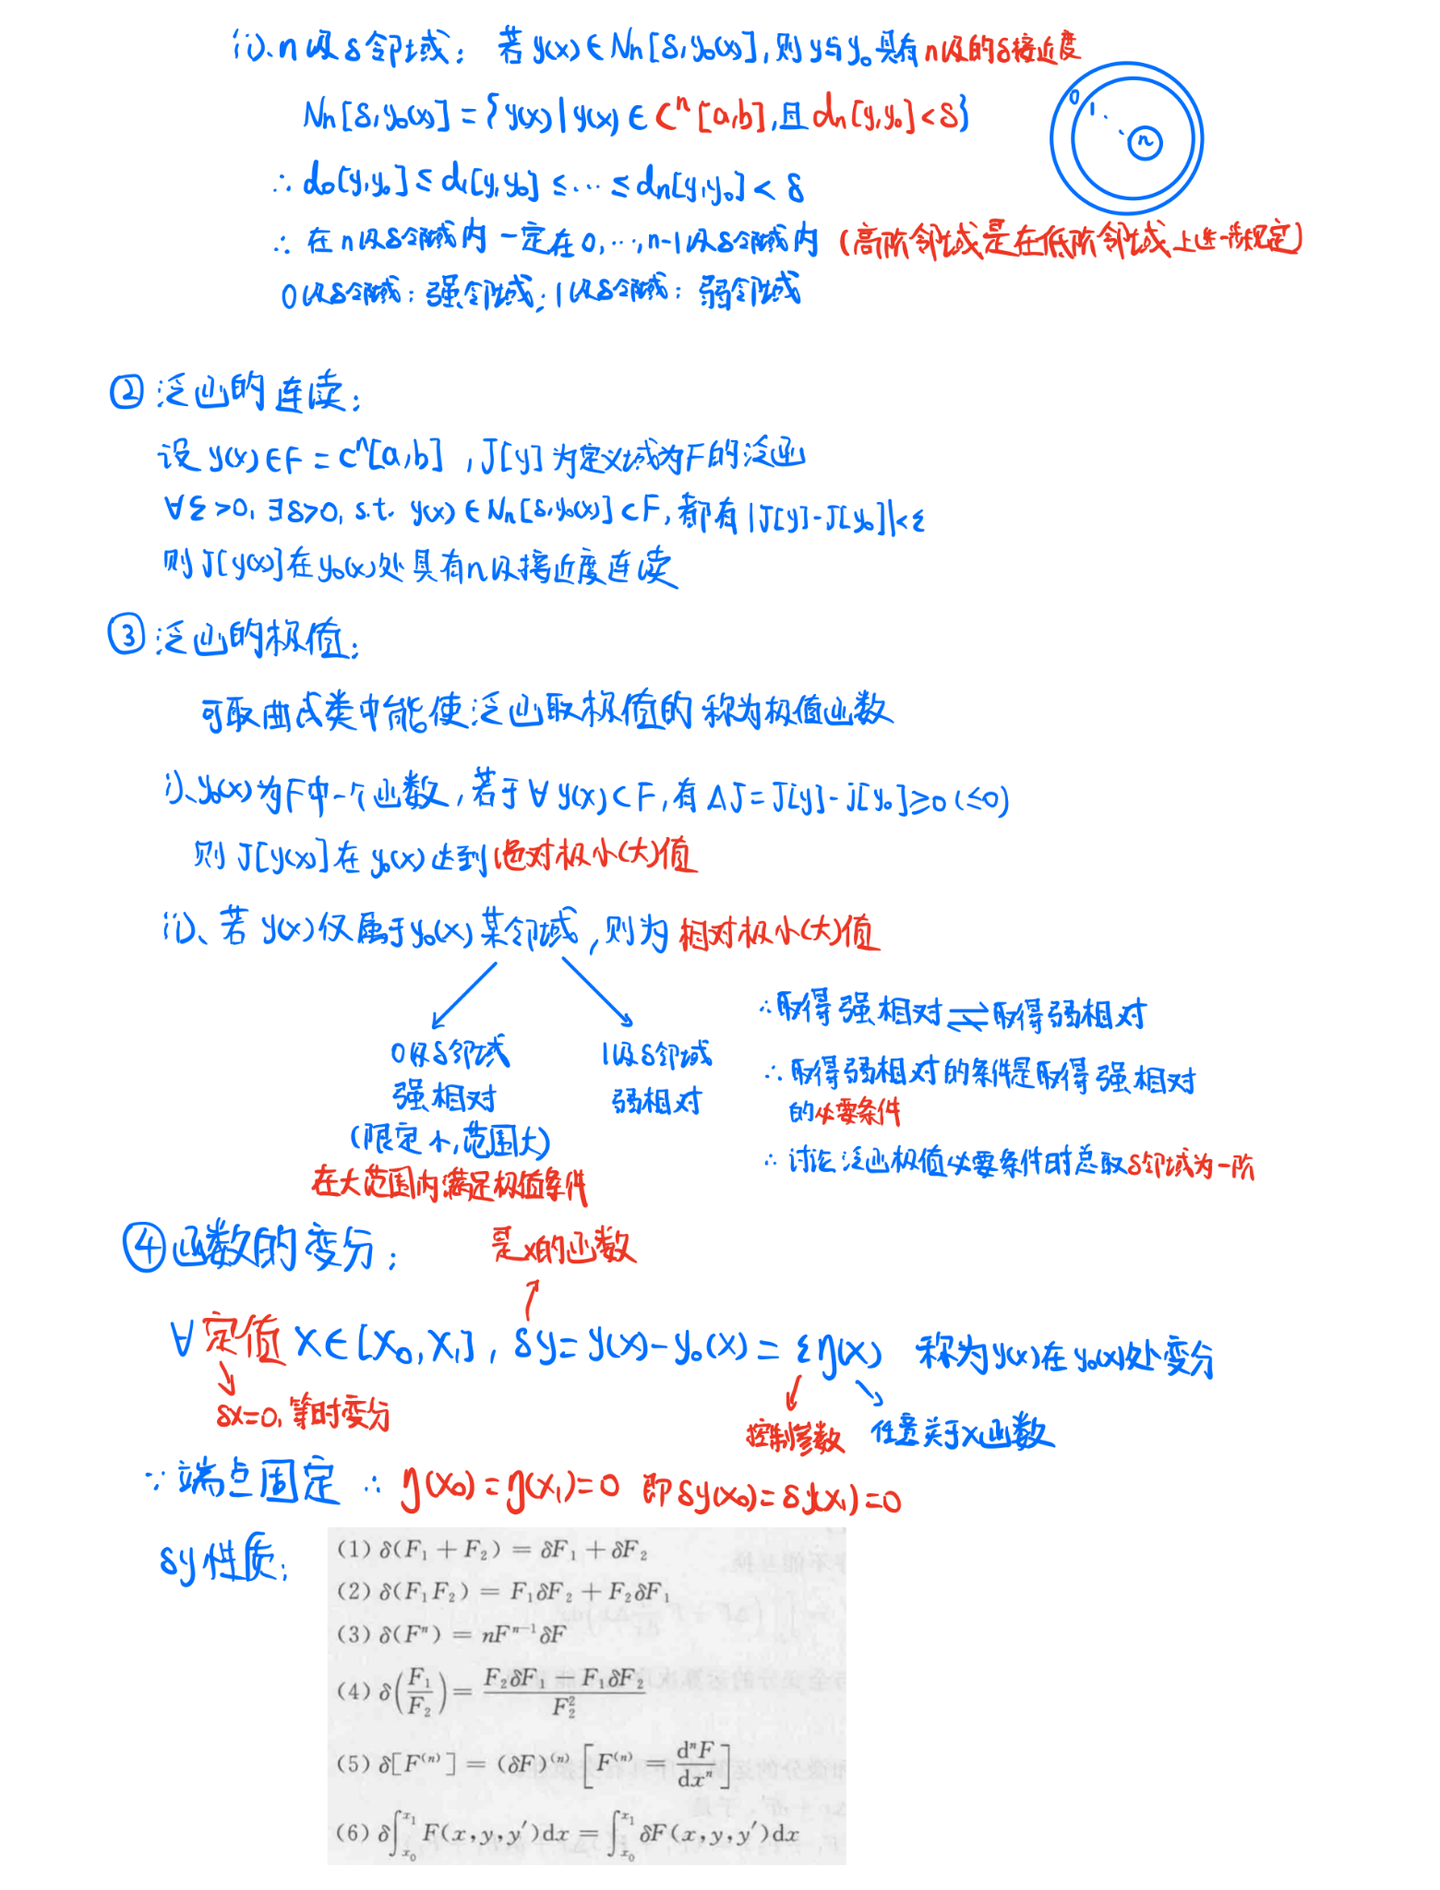 ii)、n级δ邻域：若y(x)∈Nn[δ,y₀(x)],则y与y₀具有n级的δ接近度
Nn[δ,y₀(x)]={y(x)|y(x)∈Cⁿ[a,b],且dn[y,y₀]<δ}
0
1
n
∴d₀[y,y₀]≤d₁[y,y₀]≤…≤dn[y,y₀]<δ
∴在n级δ邻域内一定在0,…,n-1级δ邻域内（高阶邻域是在低阶邻域上进一步规定）
0级δ邻域：强邻域；1级δ邻域：弱邻域
②泛函的连续：
设y(x)∈F=Cⁿ[a,b],J[y]为定义域为F的泛函
∀ε>0,∃δ>0,s.t. y(x)∈Nn[δ,y₀(x)]⊂F,都有|J[y]-J[y₀]|<ε
则J[y(x)]在y₀(x)处具有n级接近度连续
③泛函的极值：
可取曲线类中能使泛函取极值的称为极值函数
i)、y₀(x)为F中一个函数,若于∀y(x)⊂F,有ΔJ=J[y]-J[y₀]≥0(≤0)
则J[y(x)]在y₀(x)达到绝对极小(大)值
ii)、若y(x)仅属于y₀(x)某邻域,则为相对极小(大)值
0级δ邻域
强相对
(限定小,范围大)
在大范围内满足极值条件
1级δ邻域
弱相对
∴取得强相对⇌取得弱相对
∴取得弱相对的条件是取得强相对
的必要条件
∴讨论泛函极值必要条件时总取δ邻域为一阶
④函数的变分：
是x的函数
∀定值x∈[x₀,x₁],δy=y(x)-y₀(x)=εη(x) 称为y(x)在y₀(x)处变分
δx=0,等时变分
控制参数
任意关于x函数
∵端点固定 ∴η(x₀)=η(x₁)=0 即δy(x₀)=δy(x₁)=0
δy性质：
(1) δ(F₁+F₂)=δF₁+δF₂
(2) δ(F₁F₂)=F₁δF₂+F₂δF₁
(3) δ(Fⁿ)=nFⁿ⁻¹δF
(4) δ(F₁/F₂)=(F₂δF₁-F₁δF₂)/F₂²
(5) δ[F⁽ⁿ⁾]=(δF)⁽ⁿ⁾ [F⁽ⁿ⁾=dⁿF/dxⁿ]
(6) δ∫_{x₀}^{x₁}F(x,y,y′)dx=∫_{x₀}^{x₁}δF(x,y,y′)dx